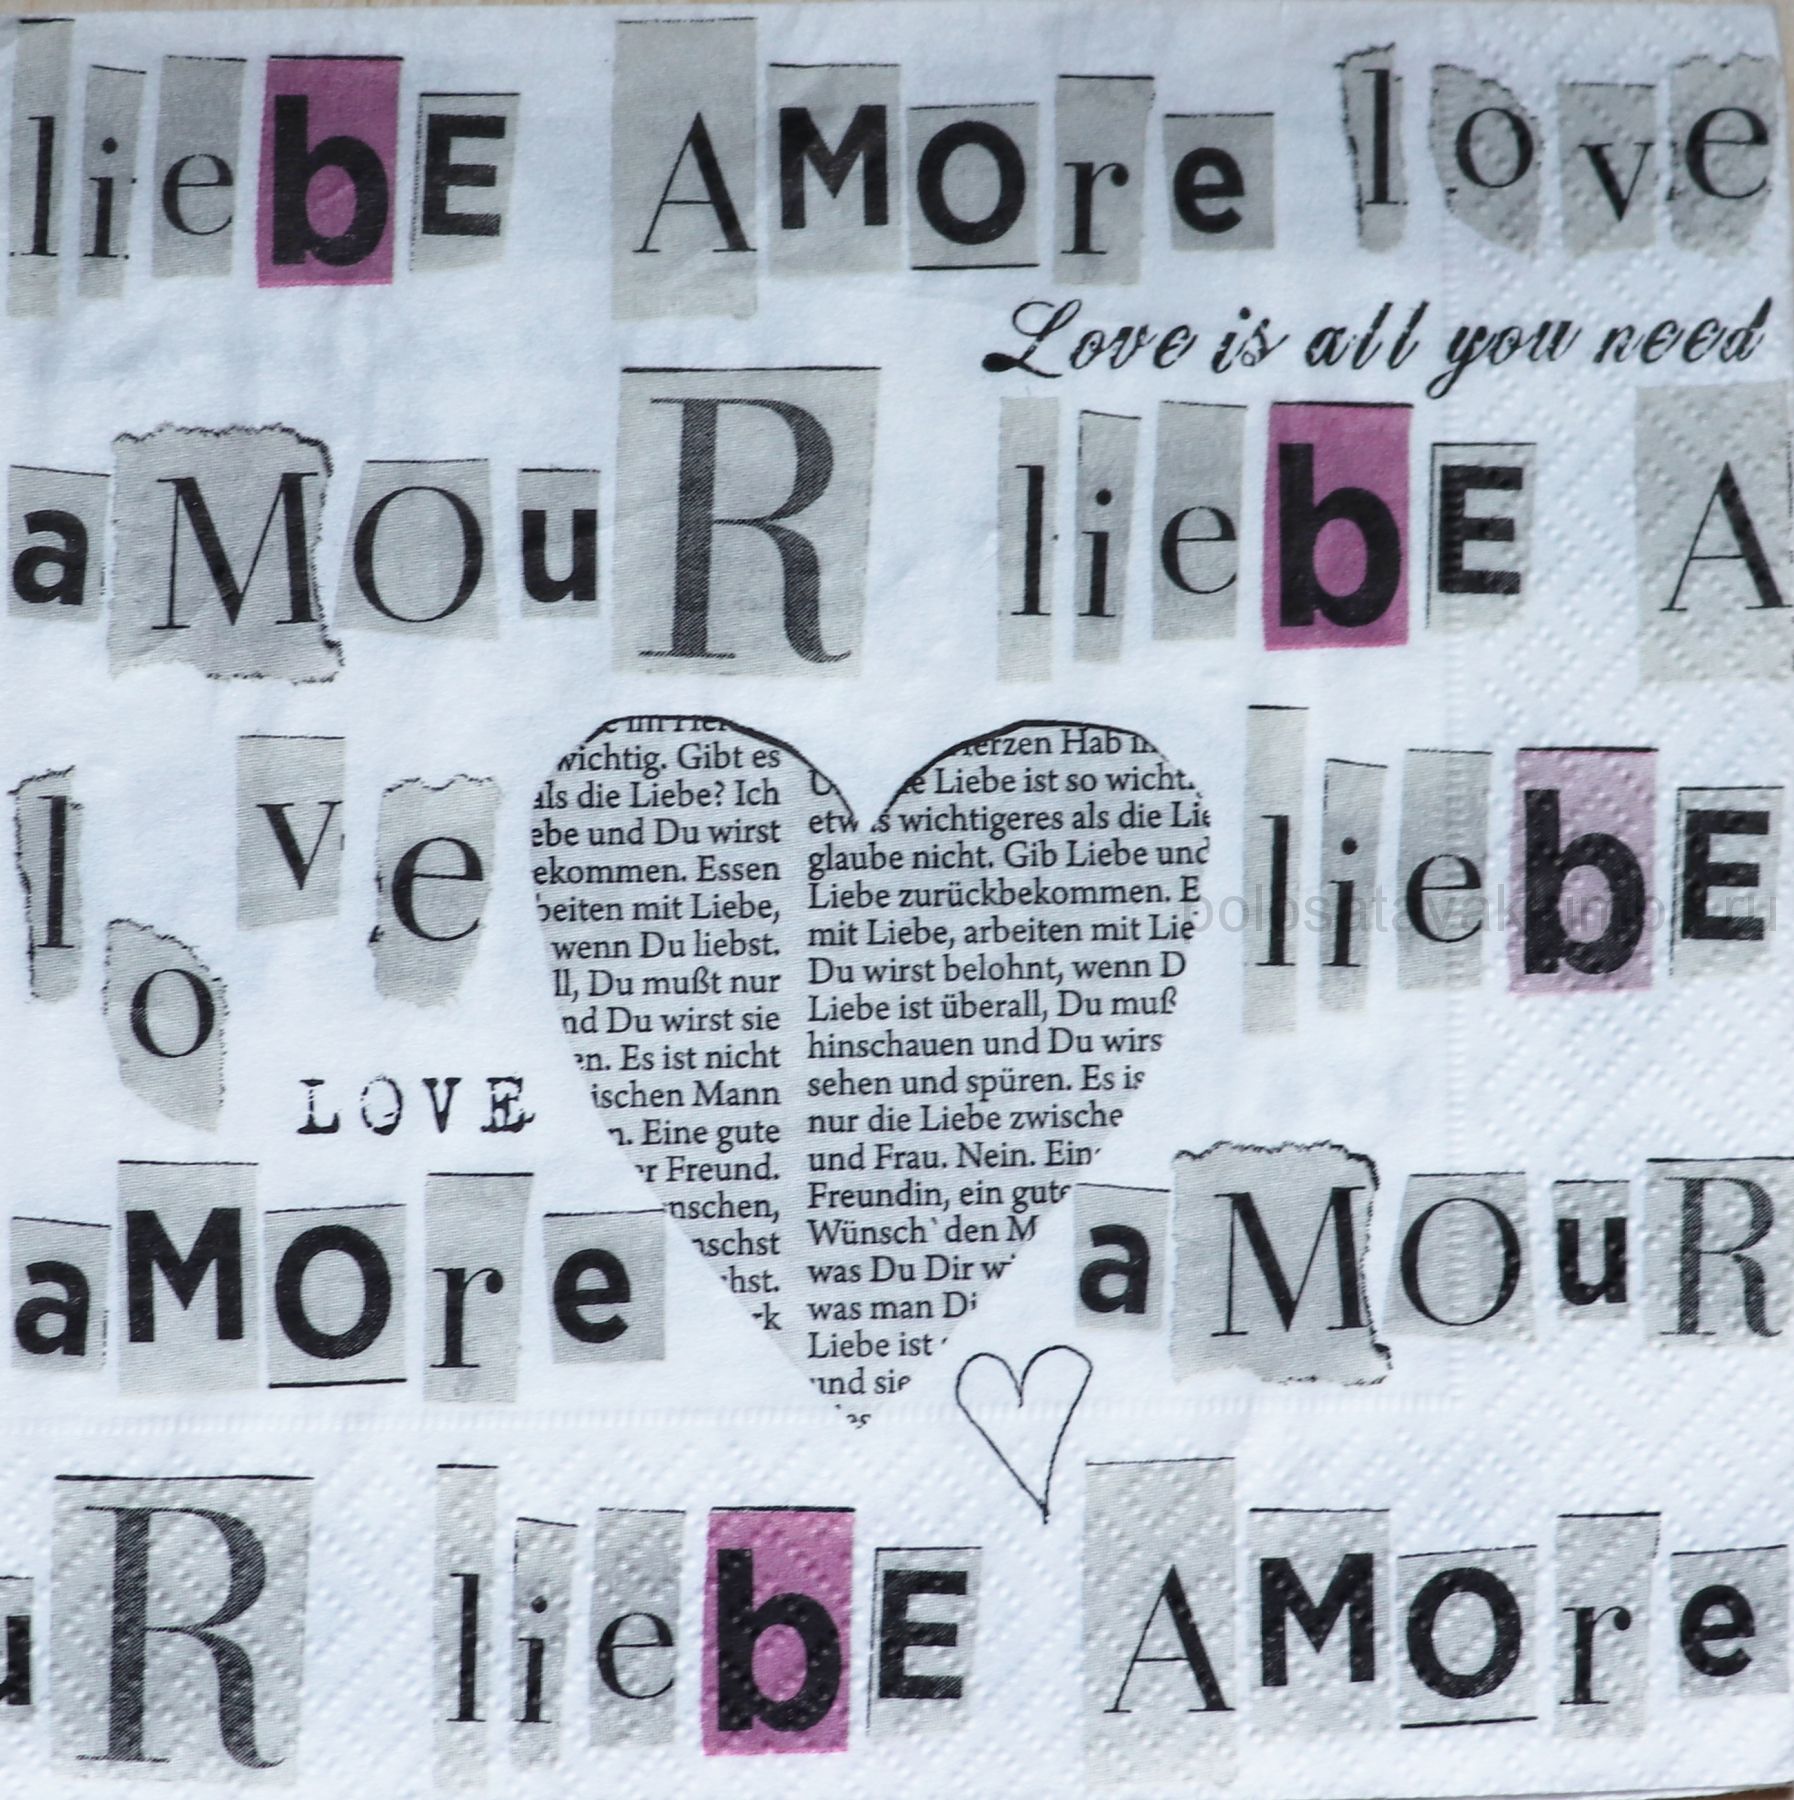 liebE AMOre love
Love is all you need
aMOuR liebE A
love
wichtig. Gibt es
als die Liebe? Ich
und Du wirst
Essen
mit Liebe,
wenn Du liebst.
Du mußt nur
Du wirst sie
Es ist nicht
Mann
Eine gute
Freund.
Hab
Liebe ist so
wichtigeres als die
glaube nicht. Gib Liebe und
Liebe zurückbekommen. E
mit Liebe, arbeiten mit Lie
Du wirst belohnt, wenn D
Liebe ist überall, Du muß
hinschauen und Du wirs
sehen und spüren. Es is
nur die Liebe zwische
und Frau. Nein. Ein
Freundin, ein gute
Wünsch` den M
was Du Dir
was man Di
Liebe ist
und sie
liebE
LOVE
aMOre
aMOuR
uR liebE AMOre